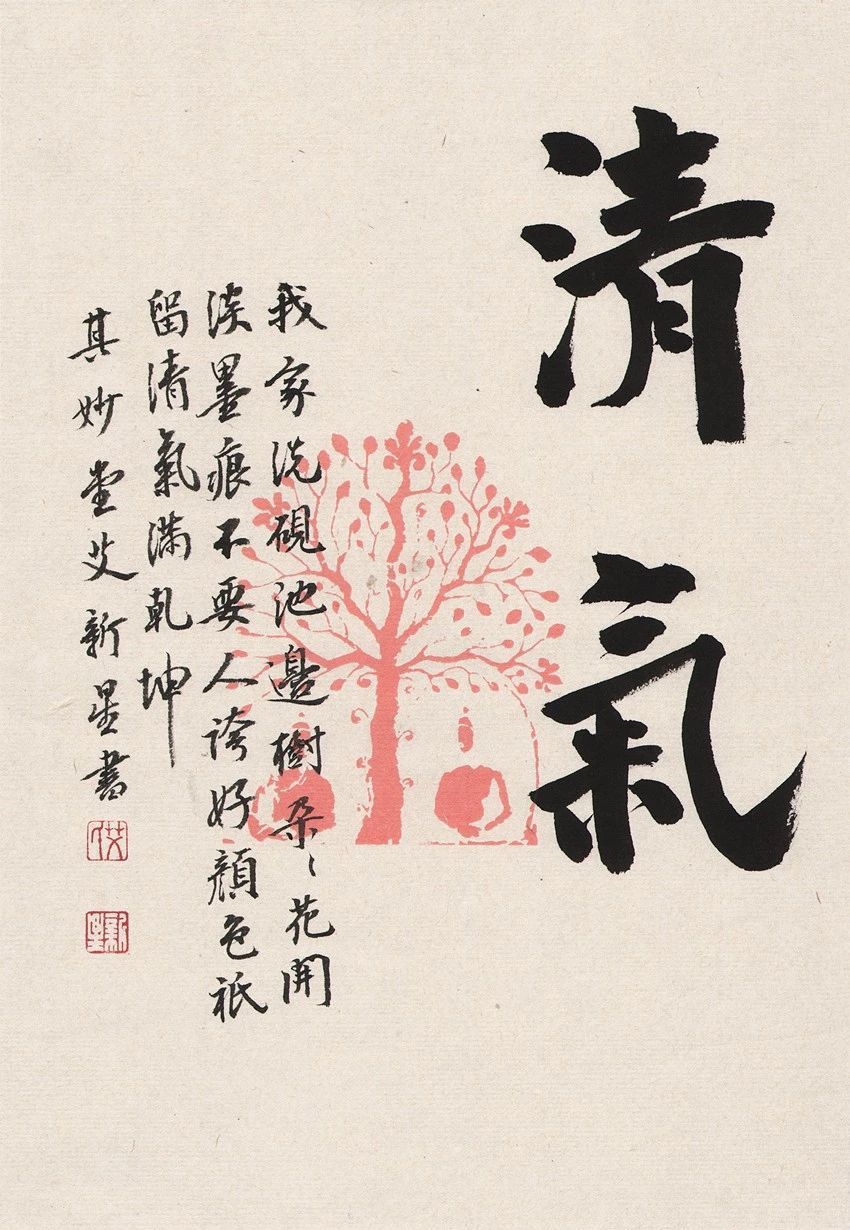 清氣
我家洗硯池邊樹朵〻花開
淡墨痕不要人誇好顏色祇
留清氣滿乾坤
其妙堂艾新星書
艾
新星